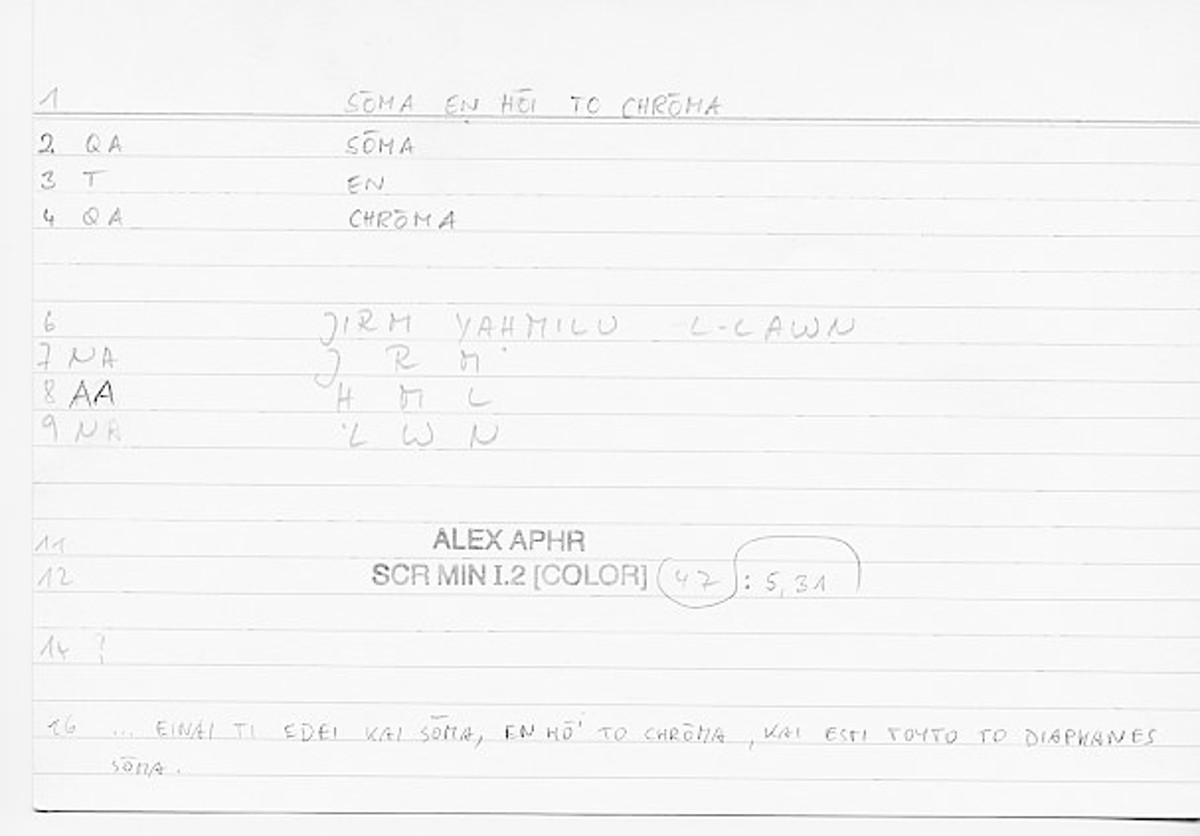 1 SŌMA EN HŌI TO CHRŌMA
2 QA SŌMA
3 T EN
4 QA CHRŌMA
6 JIRM YAHMILU L-LAWN
7 NA J R M
8 AA H M L
9 NA L W N
11 ALEX APHR
12 SCR MIN I.2 [COLOR] 47 : 5, 31
14 ?
16 ... EINAI TI EDEI KAI SŌMA, EN HŌI TO CHRŌMA, KAI ESTI TOYTO TO DIAPHANES
SŌMA.